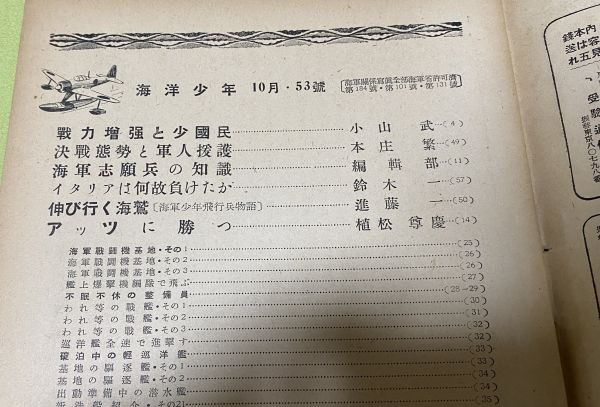 海洋少年 10月・53號
海軍關係寫眞全部海軍省許可濟
第184號・第101號・第131號
戰力增强と少國民 小山 武 (4)
決戰態勢と軍人援護 本庄 繁 (49)
海軍志願兵の知識 編輯部 (11)
イタリアは何故負けたか 鈴木 一 (57)
伸び行く海鷲〔海軍少年飛行兵物語〕 進藤 一 (50)
アッツに勝つ 植松尊慶 (14)
海軍戰鬪機基地・その1 (25)
海軍戰鬪機基地・その2 (26)
海軍戰鬪機基地・その3 (26)
艦上爆擊機編隊で飛ぶ (27)
不眠不休の整備員 (28-29)
われ等の戰艦・その1 (30)
われ等の戰艦・その2 (31)
われ等の戰艦・その3 (32)
巡洋艦全速で進擊す (32)
碇泊中の輕巡洋艦 (33)
基地の驅逐艦・その1 (33)
基地の驅逐艦・その2 (34)
出動準備中の潜水艦 (34)
(35)